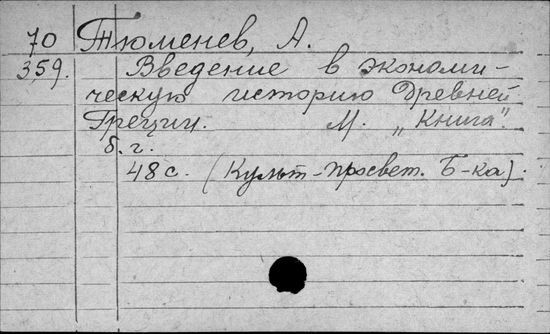 70 Тюменев, А.
359. Введение в экономи-
ческую историю Древней
Греции. М. „Книга".
б. г.
48 с. (Культ-просвет. Б-ка).